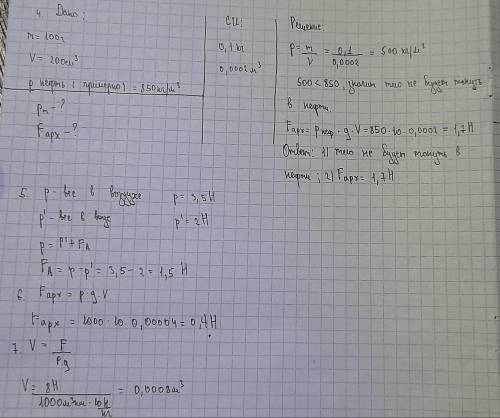 4. Дано:
m = 100г
V = 200см³
ρ нефть (примерно) = 850кг/м³
ρт - ?
Fарх - ?
СИ:
0,1 кг
0,0002 м³
Решение:
ρ = m/V = 0,1/0,0002 = 500 кг/м³
500 < 850, значит тело не будет тонуть
в нефти.
Fарх = ρнеф · g · V = 850 · 10 · 0,0002 = 1,7 Н
Ответ: 1) тело не будет тонуть в
нефти; 2) Fарх = 1,7 Н
5. p - вес в воздухе p = 3,5 Н
p' - вес в воде p' = 2 Н
p = p' + FА
FА = p - p' = 3,5 - 2 = 1,5 Н
6. Fарх = ρ · g · V
Fарх = 1000 · 10 · 0,00004 = 0,4 Н
7. V = F/ρg
V = 8Н / = 0,0008 м³